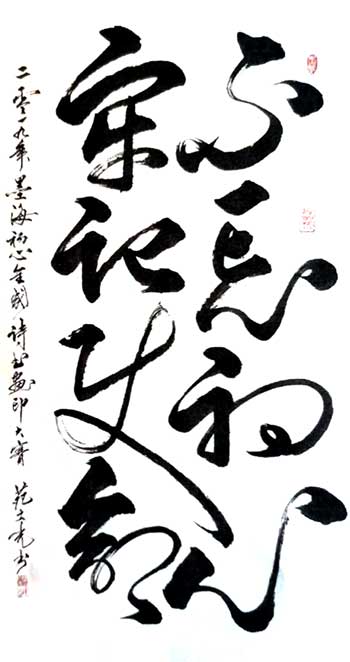 不忘初心
牢记使命
二零一九年墨海初心全国诗书画印大赛 范